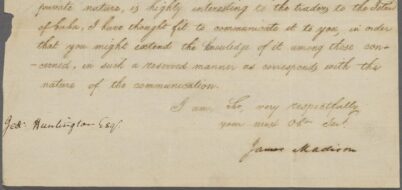 private nature, is highly interesting to the traders to the Island
of Cuba, I have thought fit to communicate it to you in order
that you might extend the knowledge of it among those con-
cerned, in such a reserved manner as corresponds with the
nature of the communication.
I am Sir, very respectfully
your most Obt Servt.
Jedh Huntington Esqr.
James Madison